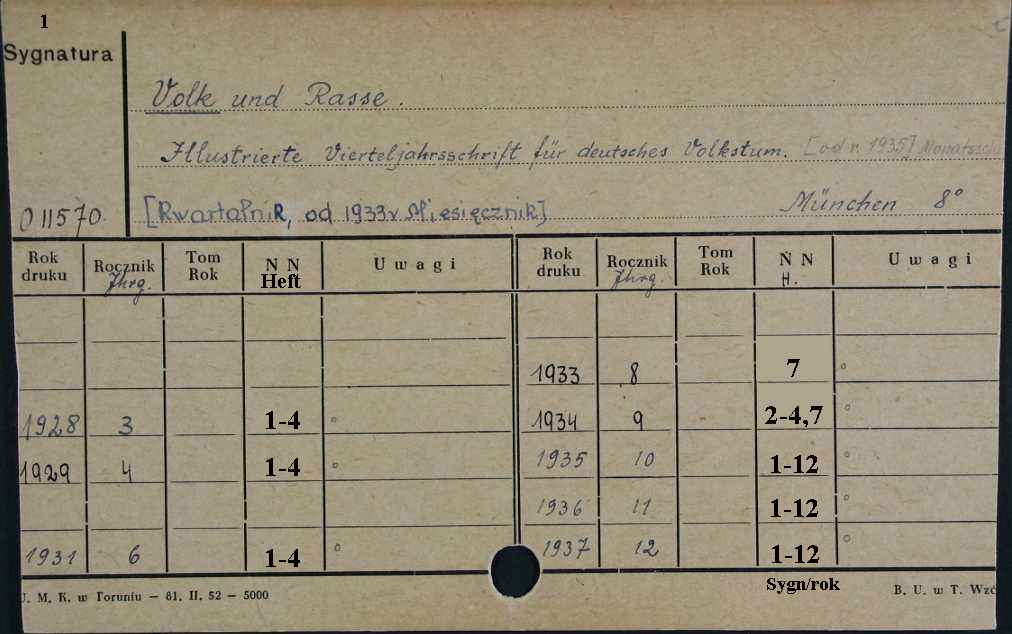 1
Sygnatura
Volk und Rasse.
Illustrierte Vierteljahrsschrift für deutsches Volkstum. [od r. 1935]
[Kwartalnik, od 1933 r. Miesięcznik] München 8°
011570.
Rok druku Rocznik Jhrg. Tom Rok N N Heft Uwagi Rok druku Rocznik Jhrg. Tom Rok N N H. Uwagi
1933 8 7 °
1928 3 1-4 ° 1934 9 2-4,7 °
1929 4 1-4 ° 1935 10 1-12 °
1936 11 1-12 °
1931 6 1-4 ° 1937 12 1-12 °
Sygn/rok
U. M. K. w Toruniu — 81. II. 52 — 5000 B. U. w T. Wzó